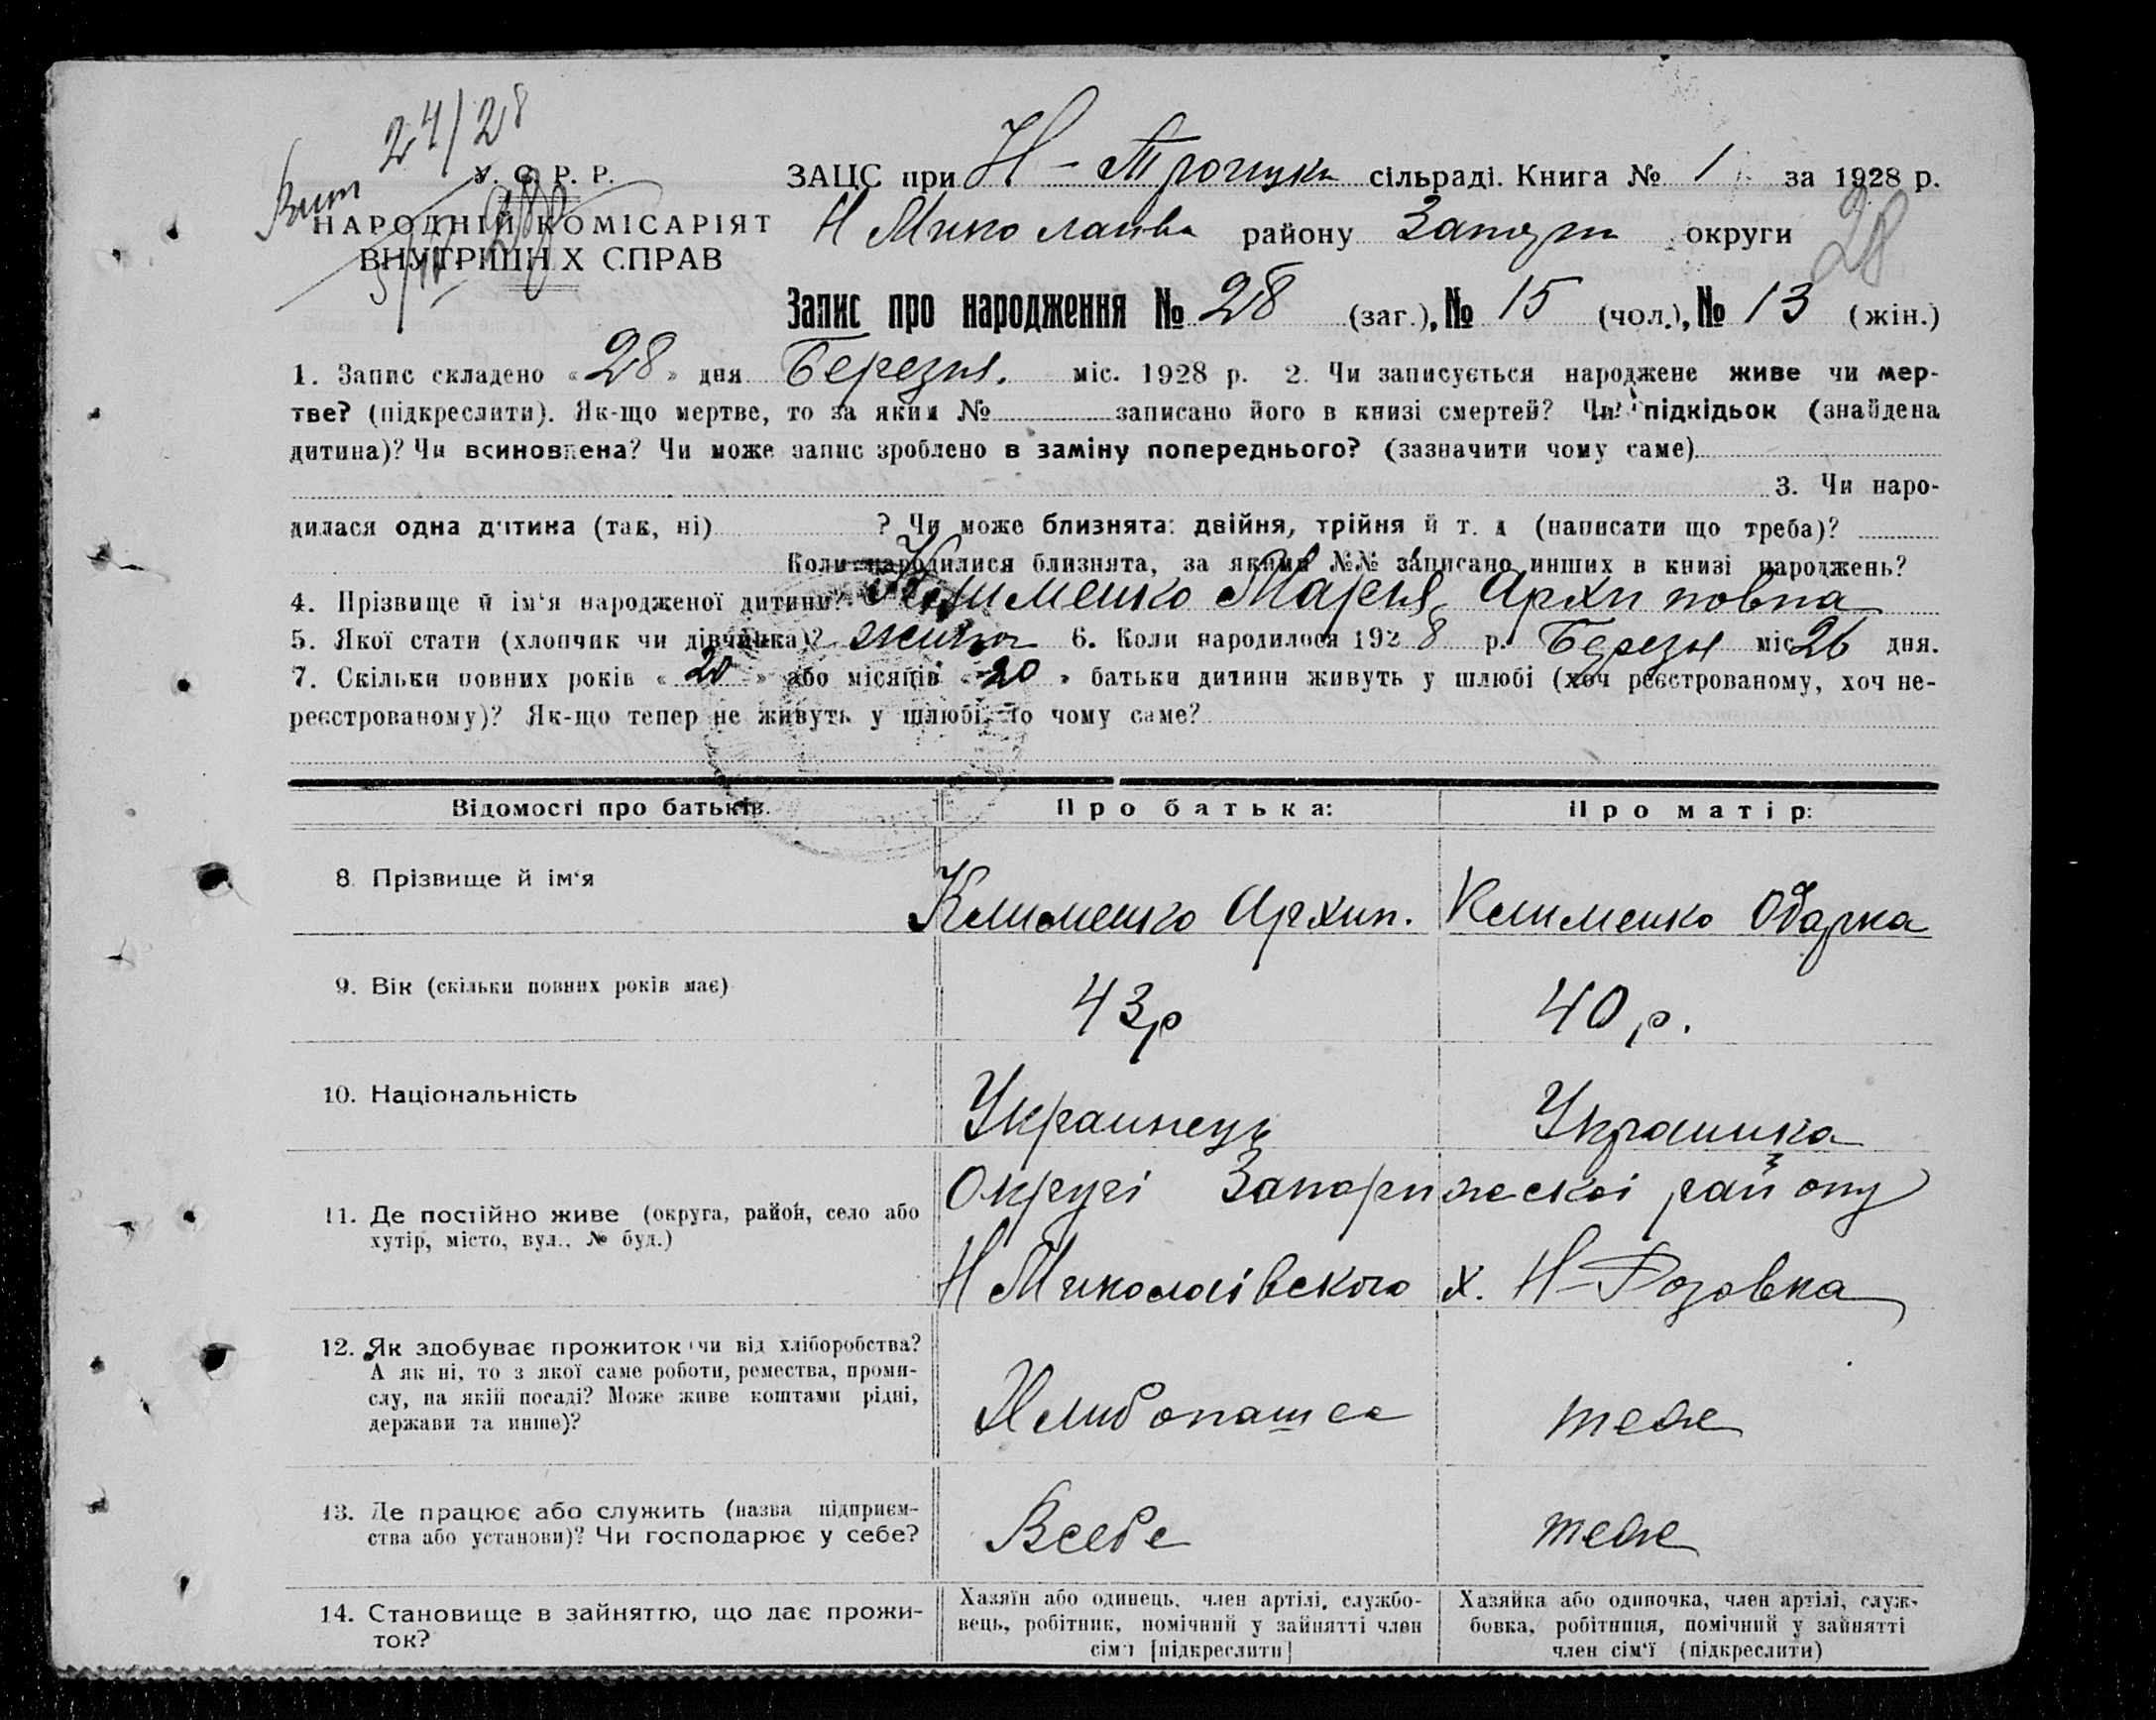 24/28
У. С. Р. Р.
НАРОДНІЙ КОМІСАРІЯТ
ВНУТРІШНІХ СПРАВ
ЗАЦС при Н-Троицки сільраді. Книга № 1 за 1928 р.
Н Миколаивк району Запоріж округи
28
Запис про народження № 28 (заг.), № 15 (чол.), № 13 (жін.)
1. Запис складено «28» дня Березня. міс. 1928 р. 2. Чи записується народжене живе чи мер-
тве? (підкреслити). Як-що мертве, то за яким № записано його в книзі смертей? Чи підкідьок (знайдена
дитина)? Чи всиновлена? Чи може запис зроблено в заміну попереднього? (зазначити чому саме)
3. Чи наро-
дилася одна дитина (так, ні) ? Чи може близнята: двійня, трійня й т. д (написати що треба)?
Коли народилися близнята, за якими №№ записано инших в книзі народжень?
4. Прізвище й ім'я народженої дитини? Клименко Марія Архиповна
5. Якої стати (хлопчик чи дівчинка)? 6. Коли народилося 1928 р. Березня міс 26 дня.
7. Скільки повних років «20» або місяців «20» батьки дитини живуть у шлюбі (хоч реєстрованому, хоч не-
реєстрованому)? Як-що тепер не живуть у шлюбі, то чому саме?
Відомості про батьків. Про батька: Про матір:
8. Прізвище й ім'я Клименко Архип. Клименко Одарка
9. Вік (скільки повних років має) 43р 40 р.
10. Національність Украинець Украинка
11. Де постійно живе (округа, район, село або
хутір, місто, вул., № буд.)
Округі Запорижескоі району
Н Миколаівского х. Н-Розовка
12. Як здобуває прожиток чи від хліборобства?
А як ні, то з якої саме роботи, ремества, проми-
слу, на якій посаді? Може живе коштами рідні,
держави та инше)?
Хлибопашес теже
13. Де працює або служить (назва підприєм-
ства або установи)? Чи господарює у себе?
Всебе теже
14. Становище в зайняттю, що дає прожи-
ток?
Хазяїн або одинець, член артілі, службо-
вець, робітник, помічний у зайнятті член
сім'ї [підкреслити]
Хазяйка або одиночка, член артілі, служ-
бовка, робітниця, помічний у зайнятті
член сім'ї (підкреслити)